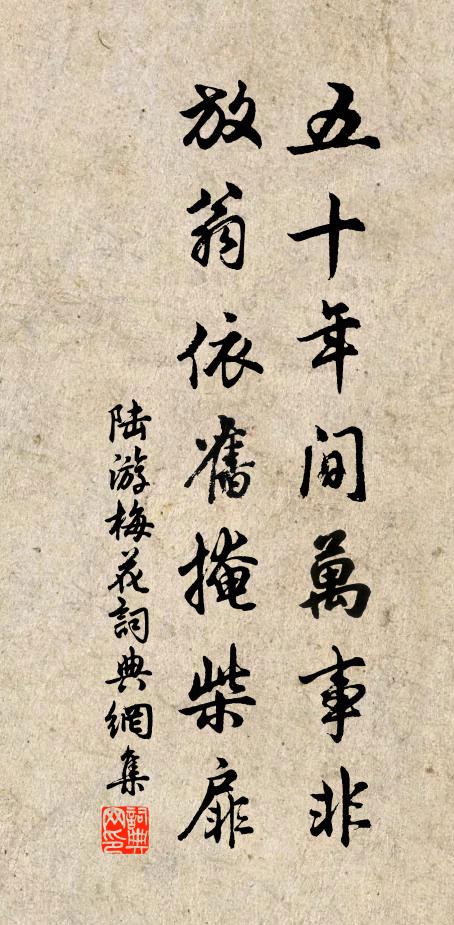 五十年間萬事非
放翁依舊掩柴扉
陸游梅花詞典網集
詞典網印